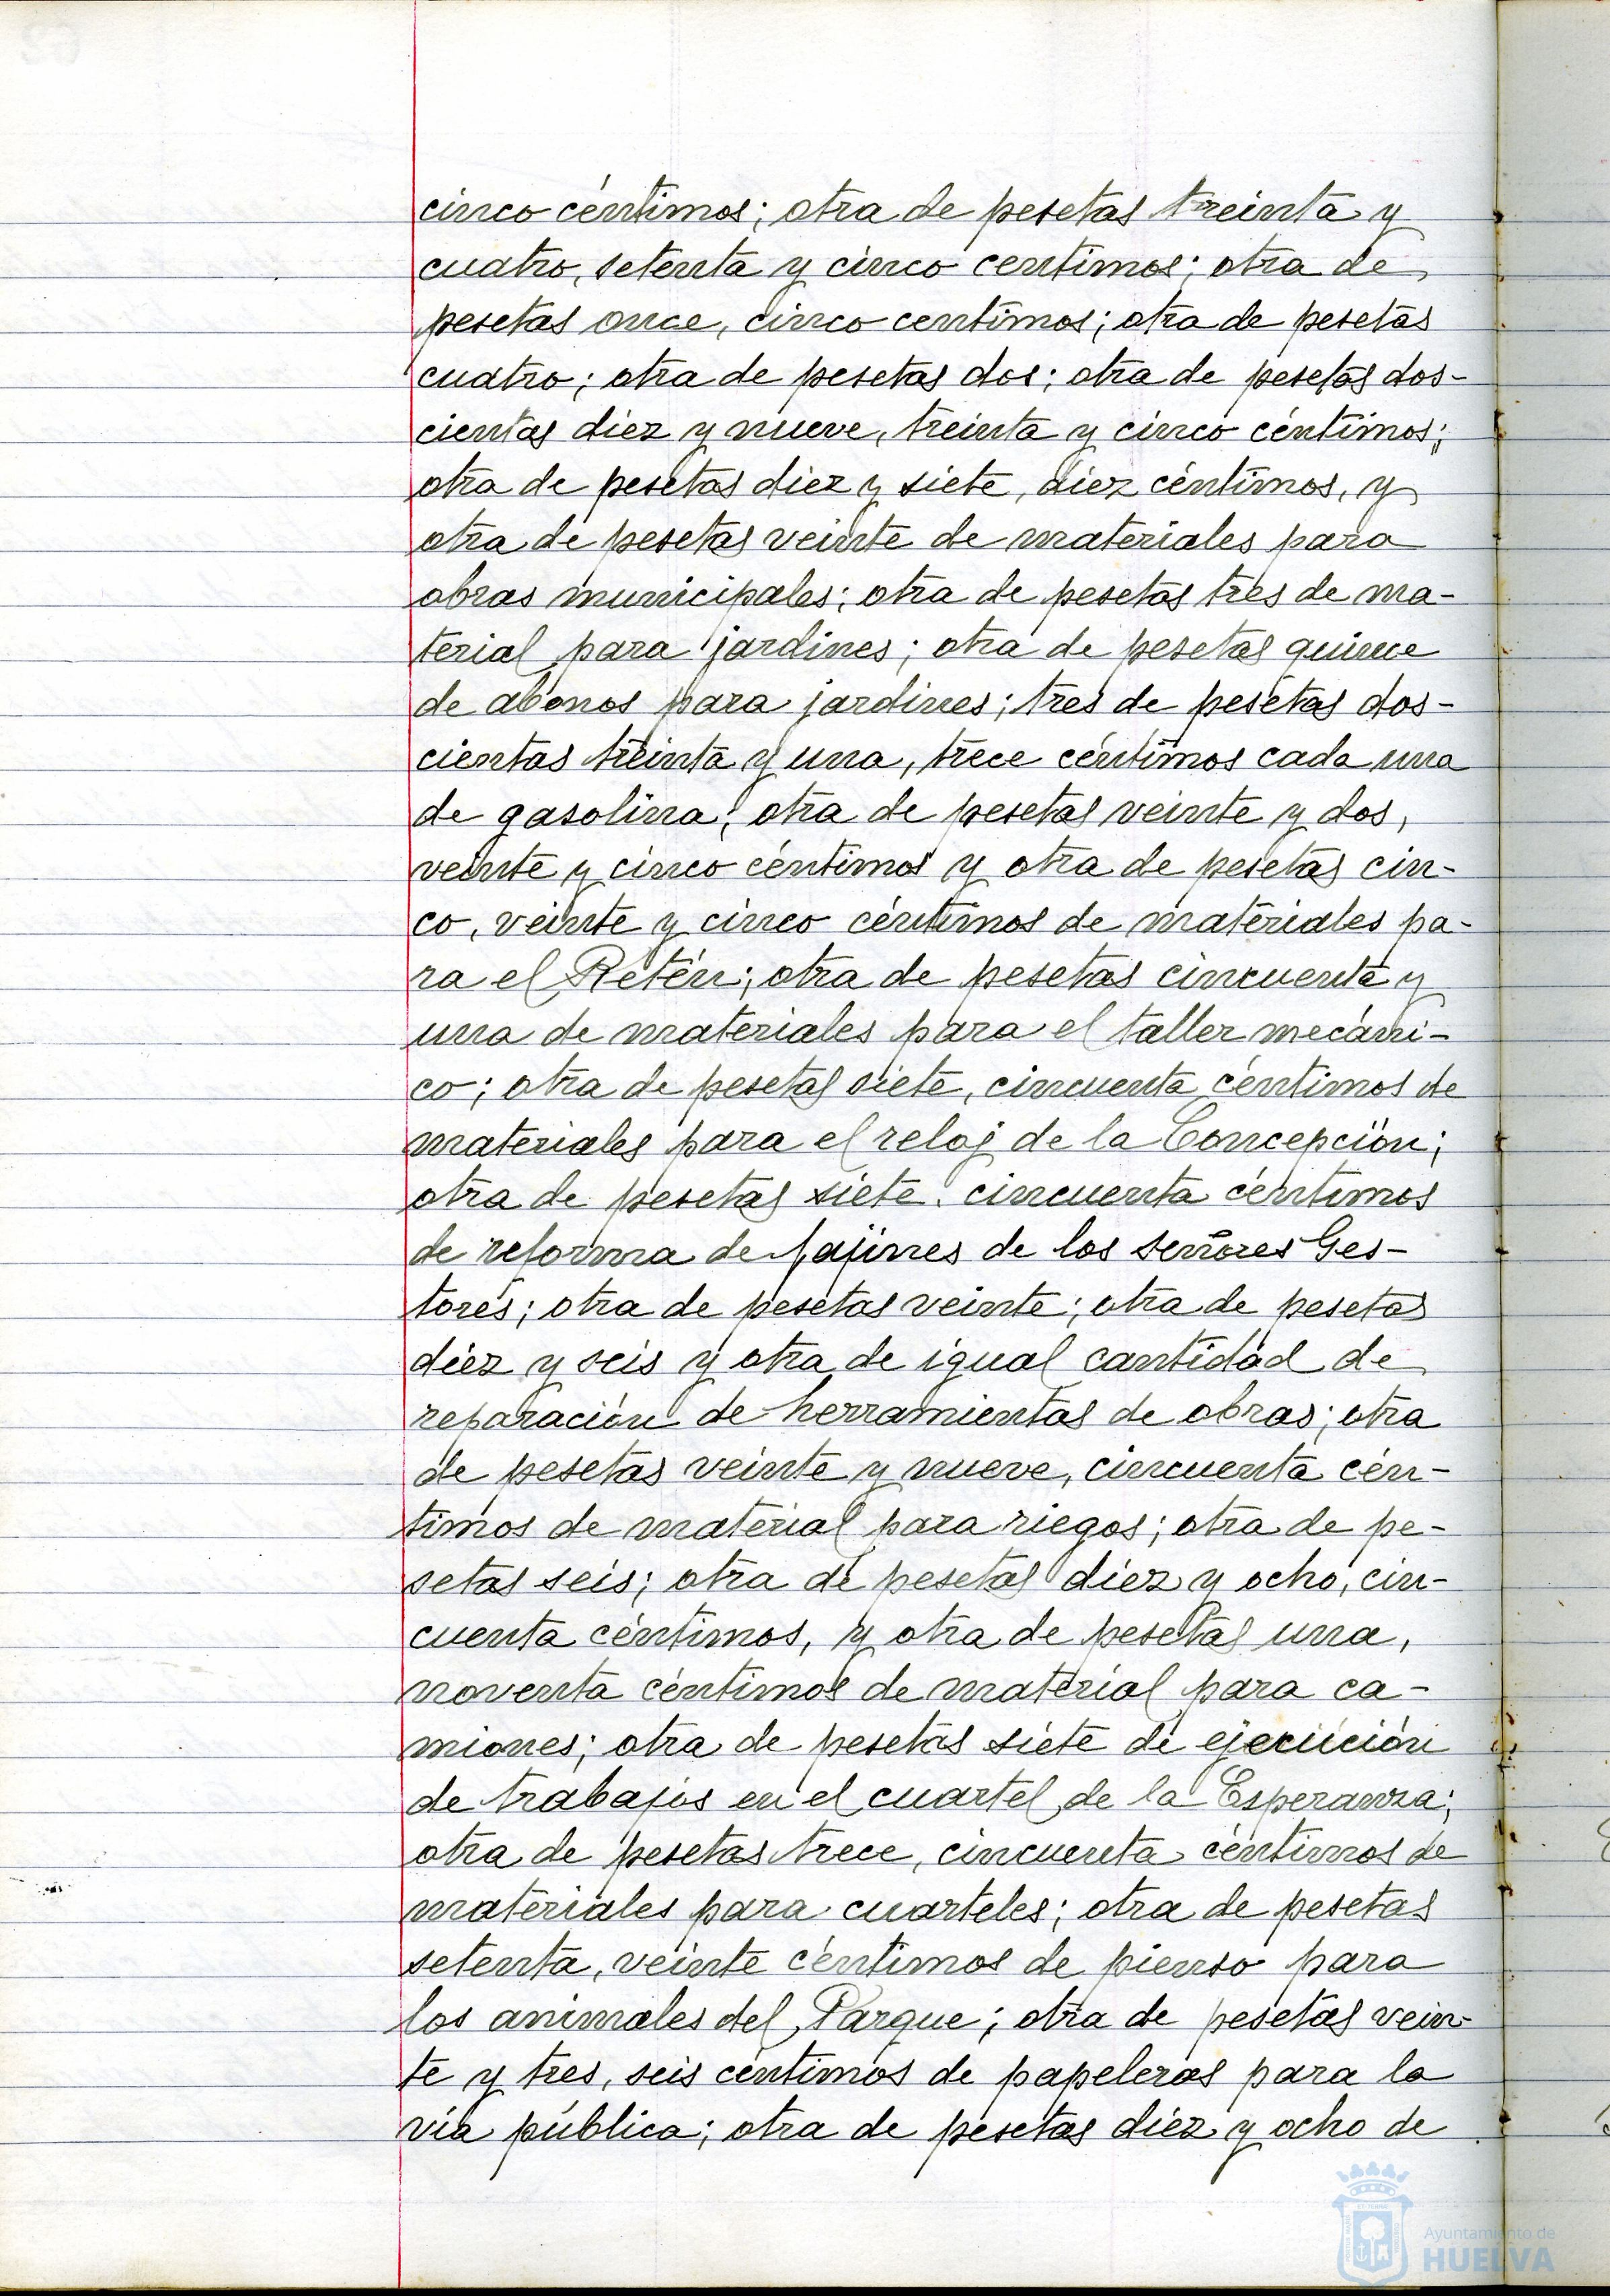 cinco céntimos; otra de pesetas treinta y
cuatro, setenta y cinco centimos; otra de
pesetas once, cinco centimos; otra de pesetas
cuatro; otra de pesetas dos; otra de pesetas dos-
cientas diez y nueve, treinta y cinco céntimos;
otra de pesetas diez y siete, diez céntimos, y
otra de pesetas veinte de materiales para
obras municipales; otra de pesetas tres de ma-
terial para jardines; otra de pesetas quince
de abonos para jardines; tres de pesetas dos-
cientas treinta y una, trece céntimos cada una
de gasolina; otra de pesetas veinte y dos,
veinte y cinco céntimos y otra de pesetas cin-
co, veinte y cinco céntimos de materiales pa-
ra el Retén; otra de pesetas cincuenta y
una de materiales para el taller mecáni-
co; otra de pesetas siete, cincuenta céntimos de
materiales para el reloj de la Concepción;
otra de pesetas siete, cincuenta céntimos
de reforma de fajines de los señores Ges-
tores; otra de pesetas veinte; otra de pesetas
diez y seis y otra de igual cantidad de
reparación de herramientas de obras; otra
de pesetas veinte y nueve, cincuenta cén-
timos de material para riegos; otra de pe-
setas seis; otra de pesetas diez y ocho, cin-
cuenta céntimos, y otra de pesetas una,
noventa céntimos de material para ca-
miones; otra de pesetas siete de ejecución
de trabajos en el cuartel de la Esperanza;
otra de pesetas trece, cincuenta céntimos de
materiales para cuarteles; otra de pesetas
setenta, veinte céntimos de pienso para
los animales del Parque; otra de pesetas vein-
te y tres, seis céntimos de papeleras para la
vía pública; otra de pesetas diez y ocho de
Ayuntamiento de
HUELVA